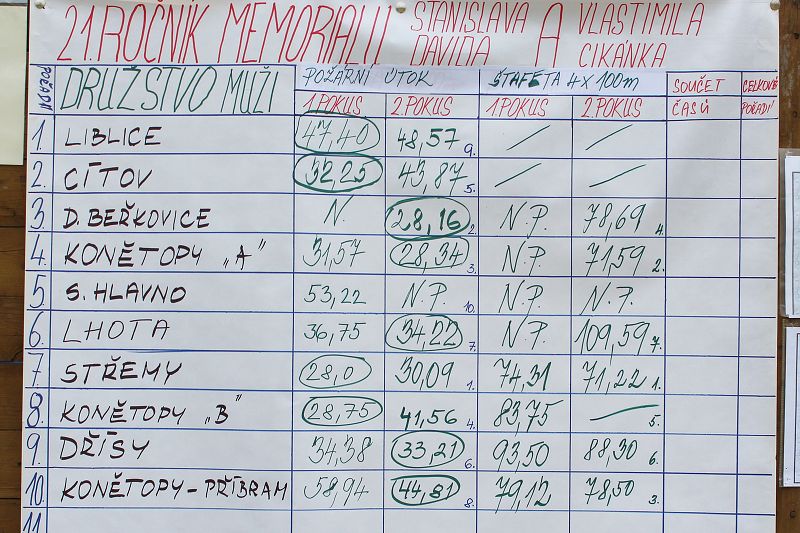 21. ROČNÍK MEMORIALU STANISLAVA DAVIDA A VLASTIMILA CIKÁNKA
POŘADÍ DRUŽSTVO MUŽI POŽÁRNÍ ÚTOK ŠTAFETA 4X100m SOUČET ČASŮ CELKOVÉ POŘADÍ
1.POKUS 2.POKUS 1.POKUS 2.POKUS
1. LIBLICE 47,40 48,57 9. / /
2. CÍTOV 32,25 43,87 5. / /
3. D. BEŘKOVICE N. 28,16 2. N.P. 78,69 4.
4. KONĚTOPY „A" 31,57 28,34 3. N.P. 71,59 2.
5. S. HLAVNO 53,22 N.P. 10. N.P. N.P.
6. LHOTA 36,75 34,22 7. N.P. 109,59 7.
7. STŘEMY 28,0 30,09 1. 74,31 71,22 1.
8. KONĚTOPY „B" 28,75 41,56 4. 83,75 — 5.
9. DŘÍSY 34,38 33,21 6. 93,50 88,30 6.
10. KONĚTOPY-PŘÍBRAM 58,94 44,81 8. 79,12 78,50 3.
11